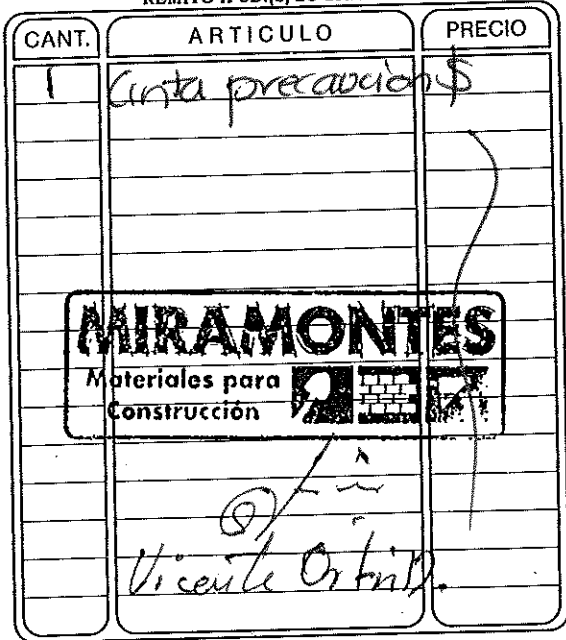 CANT. ARTICULO PRECIO
1 Cinta precaución $
MIRAMONTES
Materiales para
Construcción
Vicente